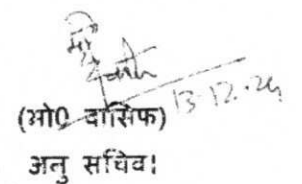 13-12-24
(मो0 वासिफ)
अनु सचिव।